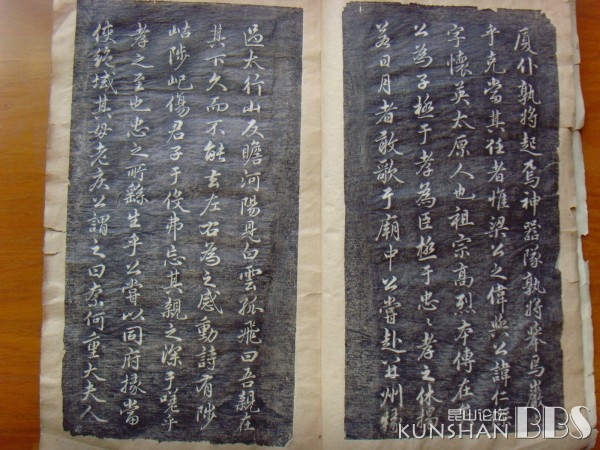 厦仆孰將起焉神器隊孰將舉焉巖
乎克當其任者惟梁公之偉歟公諱仁
字懷英太原人也祖宗高烈本傳在
公為子極于孝為臣極于忠〻孝之休揭
若日月者敢歌于廟中公嘗赴并州掾
過太行山反瞻河陽見白雲孤飛曰吾親在
其下久而不能去左右為之感動詩有陟
岵陟屺傷君子于役弗忘其親之深于嗟乎
孝之至也忠之所繇生乎公嘗以同府掾當
使絶域其母老疾公謂之曰奈何重大夫人
昆山论坛
KUNSHAN BBS